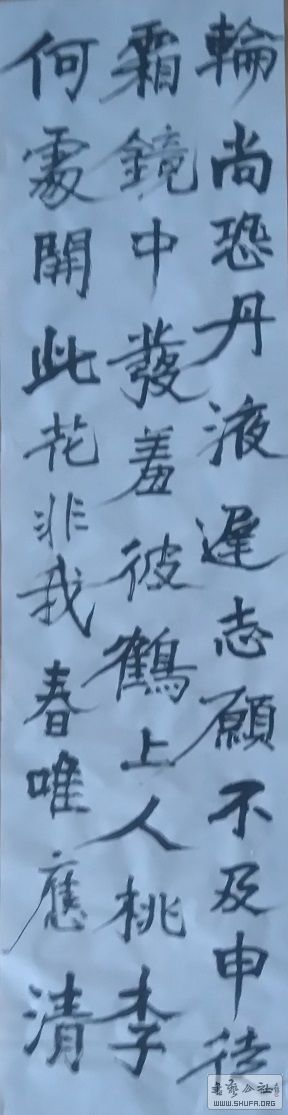 輪尚恐丹液遲志願不及申徒
霜鏡中發羞彼鶴上人桃李
何處開此花非我春唯應清
WWW.SHUFA.ORG